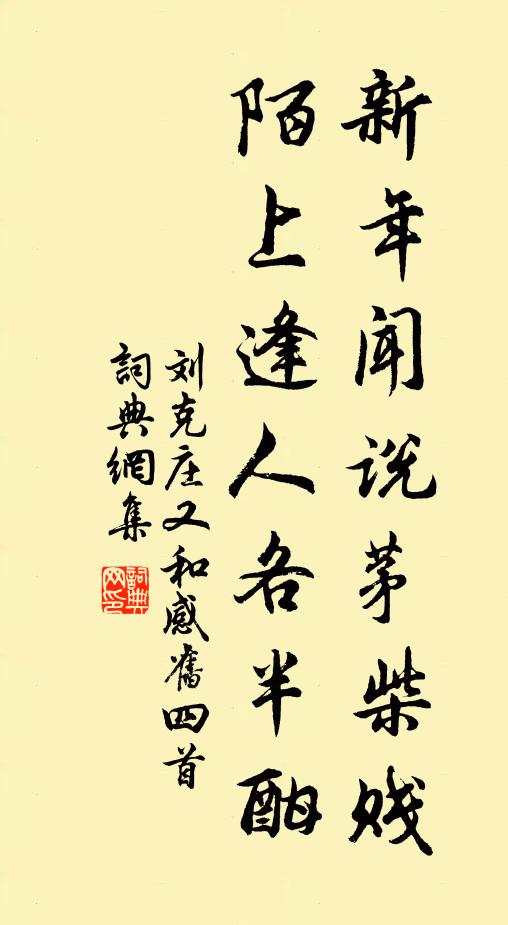 新年闻说茅柴贱
陌上逢人各半酣
刘克庄又和感旧四首
詞典網集
詞典网印